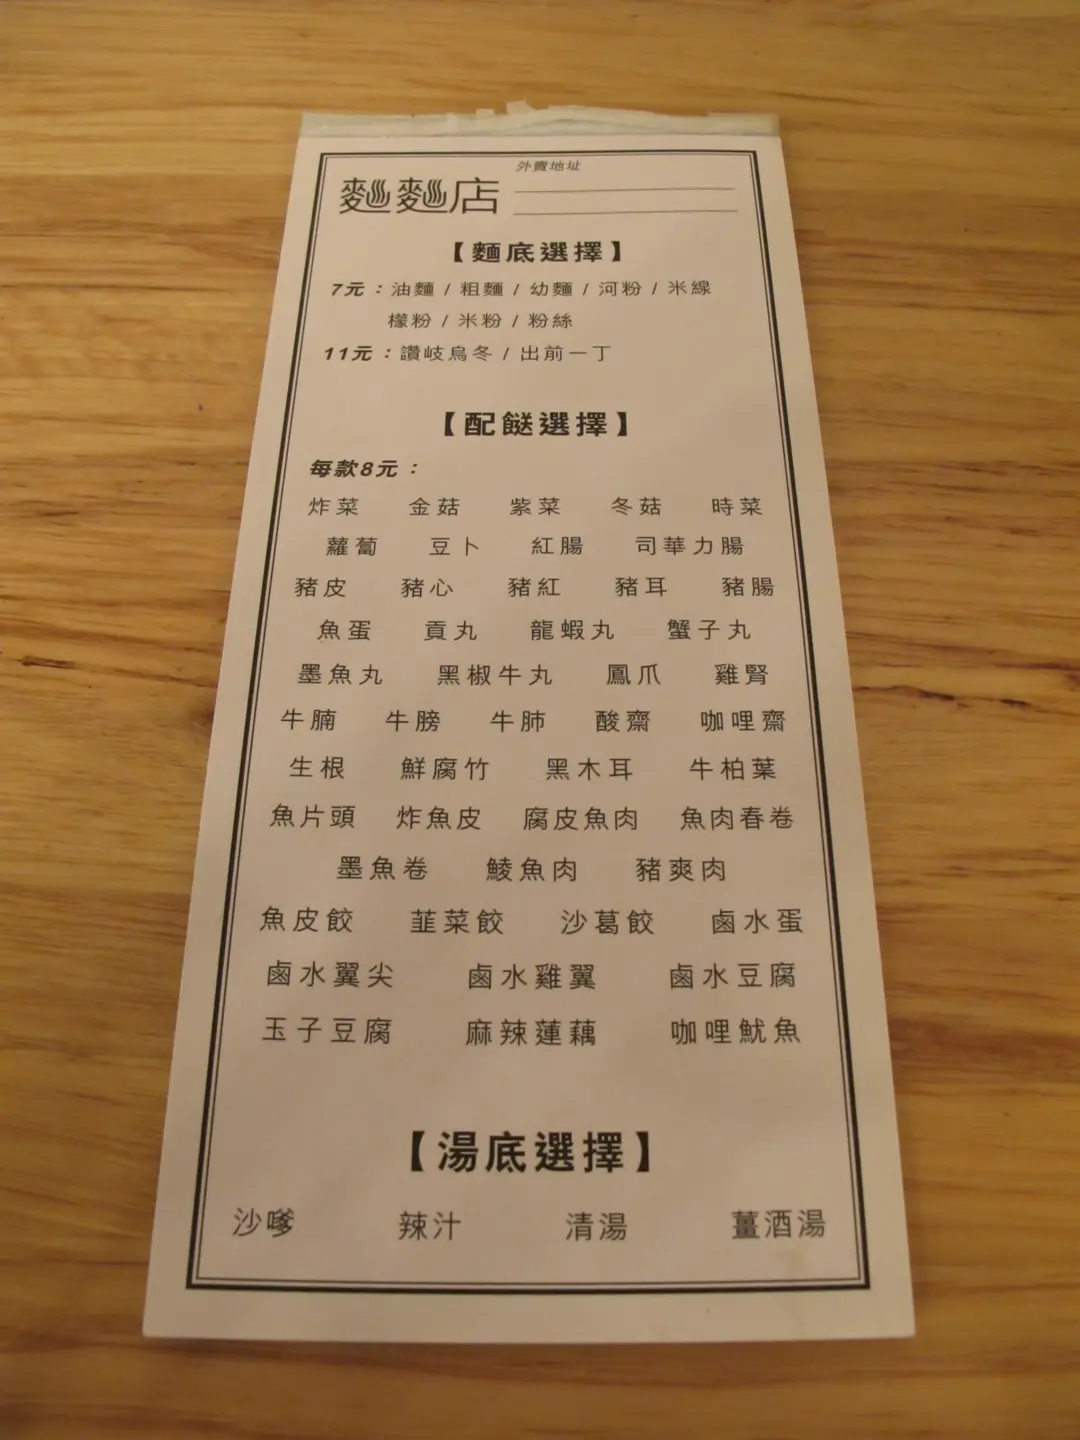 外賣地址
麵麵店
【麵底選擇】
7元：油麵 / 粗麵 / 幼麵 / 河粉 / 米線
檬粉 / 米粉 / 粉絲
11元：讚岐烏冬 / 出前一丁
【配餸選擇】
每款8元：
炸菜 金菇 紫菜 冬菇 時菜
蘿蔔 豆卜 紅腸 司華力腸
豬皮 豬心 豬紅 豬耳 豬腸
魚蛋 貢丸 龍蝦丸 蟹子丸
墨魚丸 黑椒牛丸 鳳爪 雞腎
牛腩 牛膀 牛肺 酸齋 咖哩齋
生根 鮮腐竹 黑木耳 牛柏葉
魚片頭 炸魚皮 腐皮魚肉 魚肉春卷
墨魚卷 鯪魚肉 豬爽肉
魚皮餃 韮菜餃 沙葛餃 鹵水蛋
鹵水翼尖 鹵水雞翼 鹵水豆腐
玉子豆腐 麻辣蓮藕 咖哩魷魚
【湯底選擇】
沙嗲 辣汁 清湯 薑酒湯